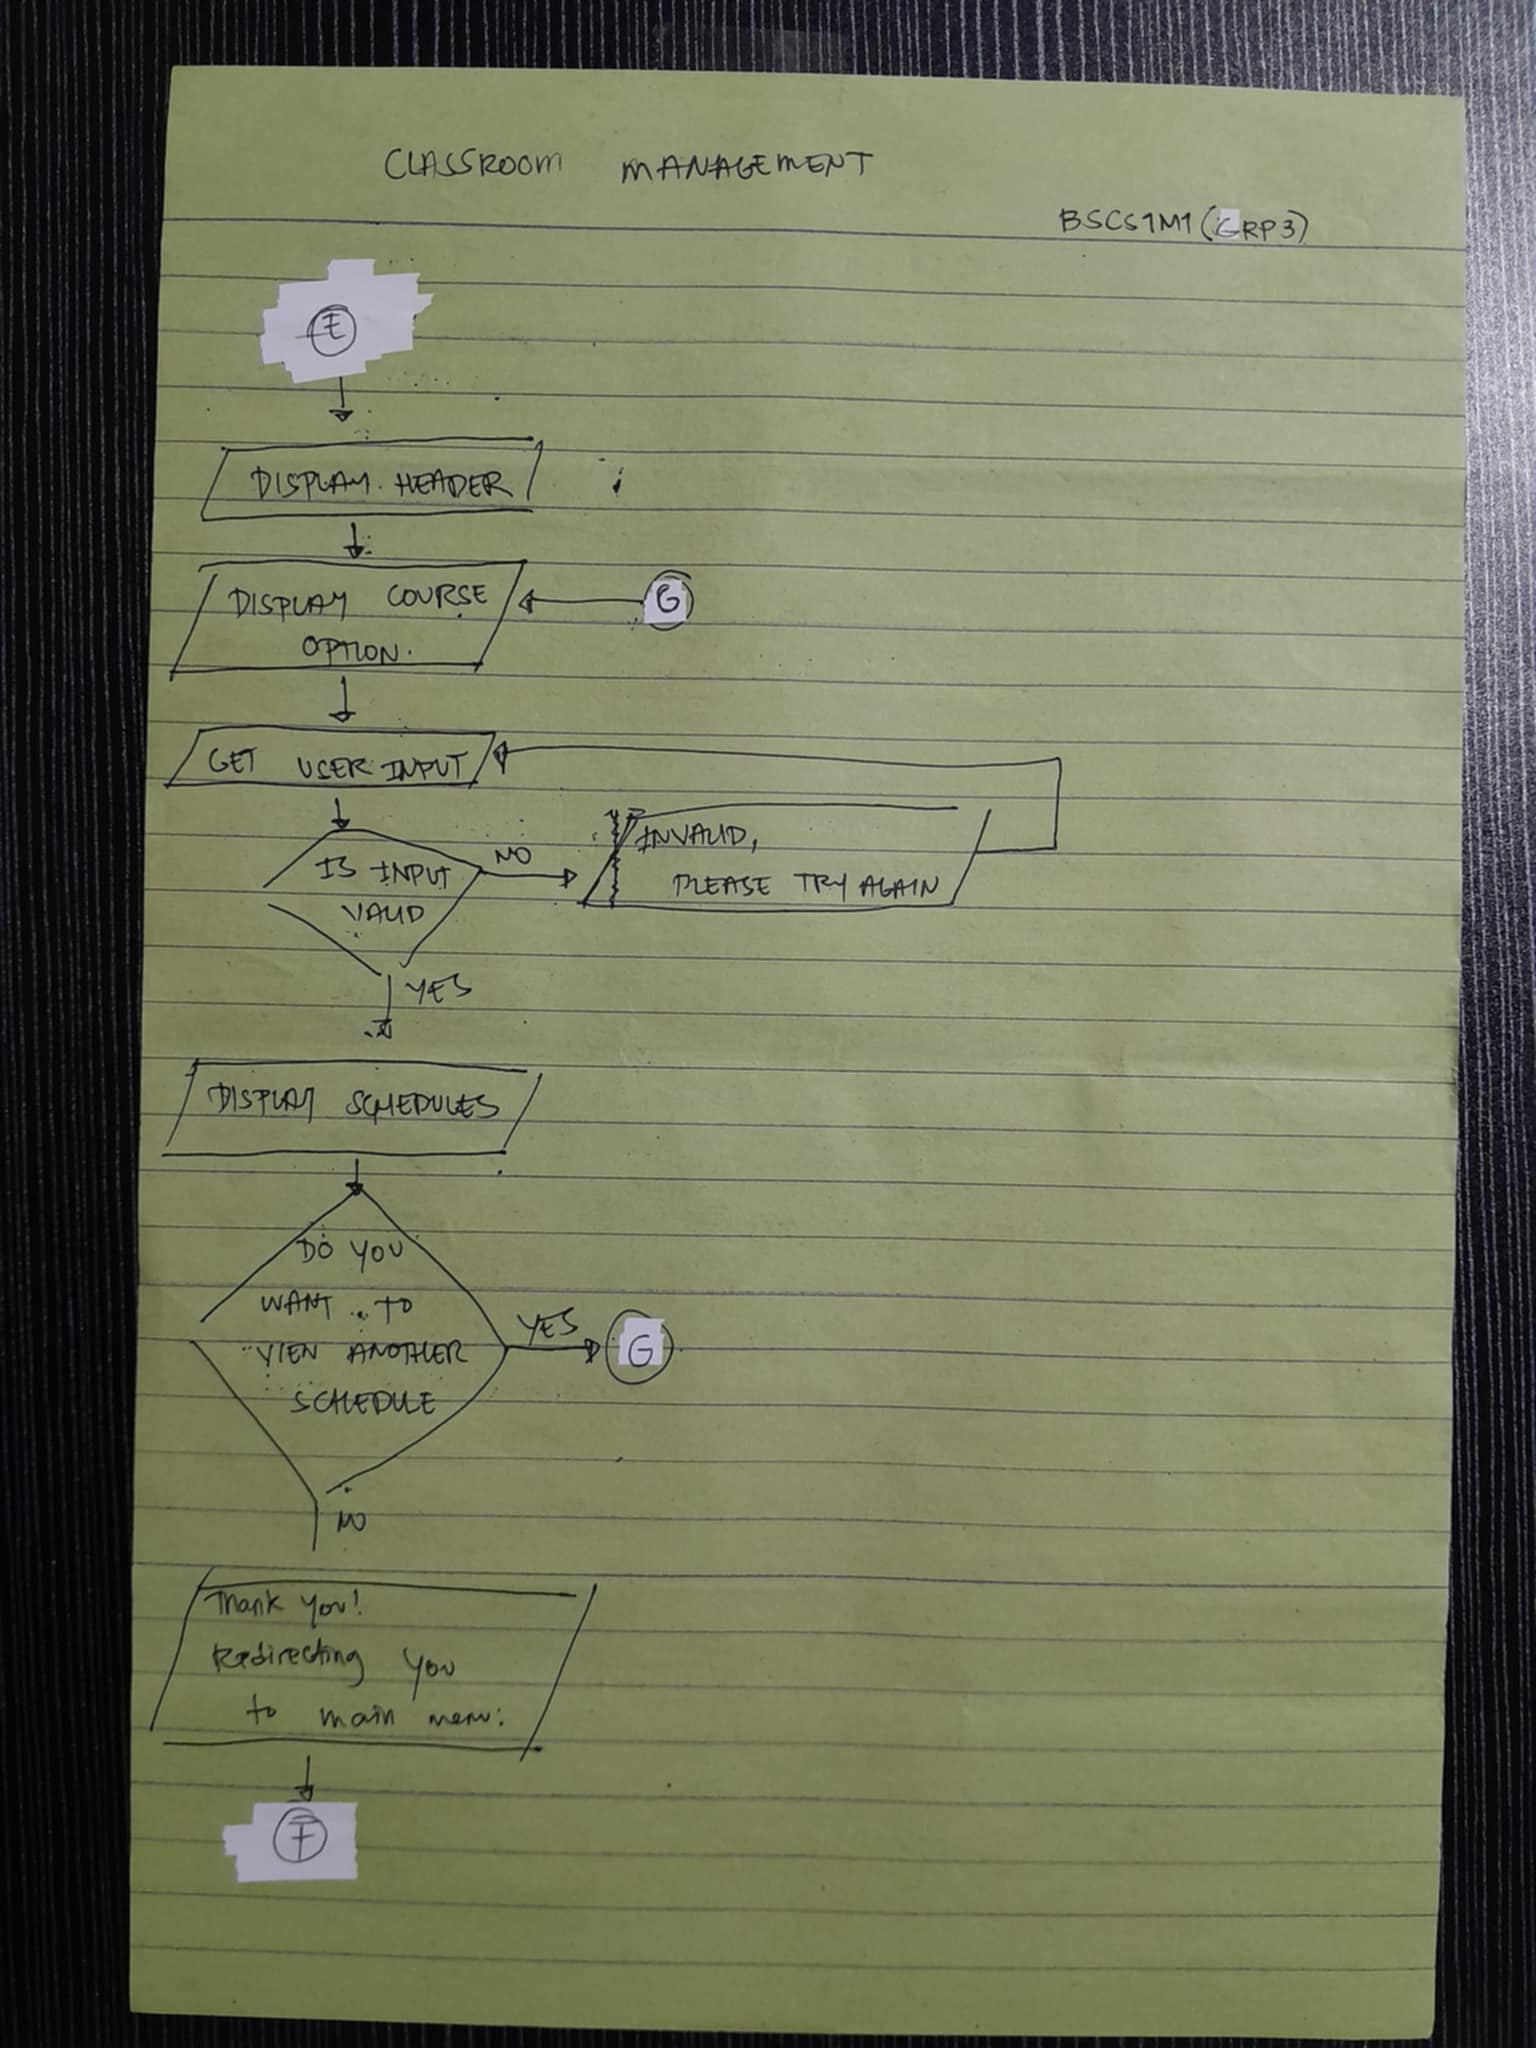 CLASSROOM MANAGEMENT
BSCS1M1 (GRP3)
E
DISPLAY HEADER
DISPLAY COURSE
OPTION.
G
GET USER INPUT
IS INPUT
VALID
NO
INVALID,
PLEASE TRY AGAIN
YES
DISPLAY SCHEDULES
DO YOU
WANT TO
VIEW ANOTHER
SCHEDULE
YES
G
NO
Thank you!
Redirecting you
to main menu.
F